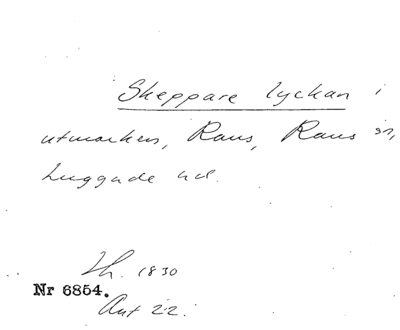 Skeppare lyckan i
utmarken, Raus, Raus sn,
Luggude hd.
Lh. 1830
Nr 6854.
Akt 22.